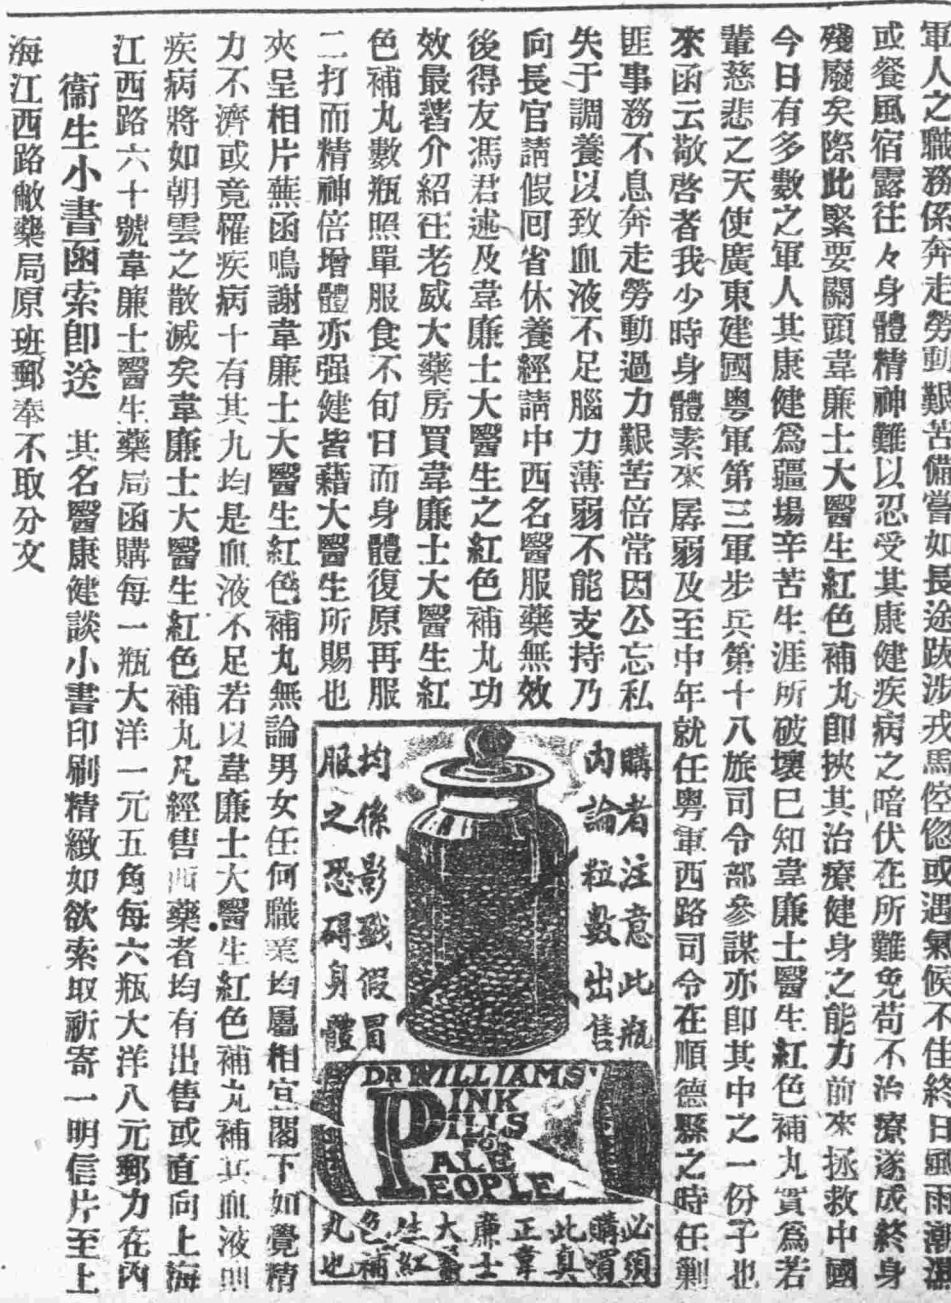 軍人之職務係奔走勞動艱苦備嘗如長途跋涉戎馬倥偬或遇氣候不佳終日風雨潮濕
或餐風宿露往々身體精神難以忍受其康健疾病之暗伏在所難免苟不治療遂成終身
殘廢矣際此緊要關頭韋廉士大醫生紅色補丸卽挾其治療健身之能力前來拯救中國
今日有多數之軍人其康健爲疆場辛苦生涯所破壞已知韋廉士醫生紅色補丸實爲若
輩慈悲之天使廣東建國粵軍第三軍步兵第十八旅司令部參謀亦卽其中之一份子也
來函云敬啓者我少時身體素來孱弱及至中年就任粵軍西路司令在順德縣之時任剿
匪事務不息奔走勞動過力艱苦倍常因公忘私
失于調養以致血液不足腦力薄弱不能支持乃
向長官請假囘省休養經請中西名醫服藥無效
後得友馮君述及韋廉士大醫生之紅色補丸功
效最著介紹在老威大藥房買韋廉士大醫生紅
色補丸數瓶照單服食不旬日而身體復原再服
二打而精神倍增體亦强健皆藉大醫生所賜也
夾呈相片蕪函鳴謝韋廉士大醫生紅色補丸無論男女任何職業均屬相宜閣下如覺精
力不濟或竟罹疾病十有其九均是血液不足若以韋廉士大醫生紅色補丸補其血液則
疾病將如朝雲之散滅矣韋廉士大醫生紅色補丸凡經售西藥者均有出售或直向上海
江西路六十號韋廉士醫生藥局函購每一瓶大洋一元五角每六瓶大洋八元郵力在內
衞生小書函索卽送 其名醫康健談小書印刷精緻如欲索取祈寄一明信片至上
海江西路敝藥局原班郵奉不取分文
購者注意此瓶
內論粒數出售
均係影戤假冒
服之恐碍身體
DR WILLIAMS'
PINK
PILLS
FOR
PALE
PEOPLE
必須
購買
此真
正韋
廉士
大醫
生紅
色補
丸也